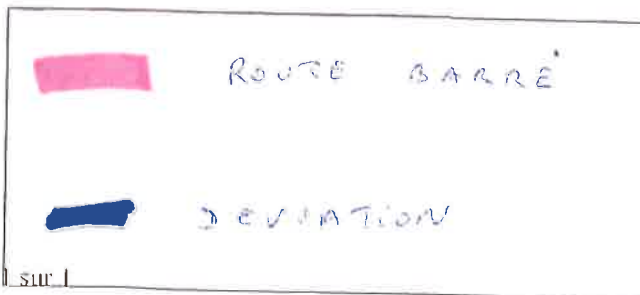 ROUTE BARRÉ
DEVIATION
1 sur 1